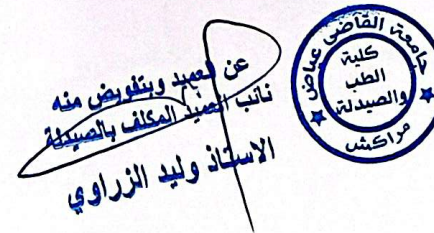 عن العميد وبتفويض منه
نائب العميد المكلف بالصيدلة
الاستاذ وليد الزراوي
جامعة القاضي عياض
كلية
الطب
والصيدلة
مراكش